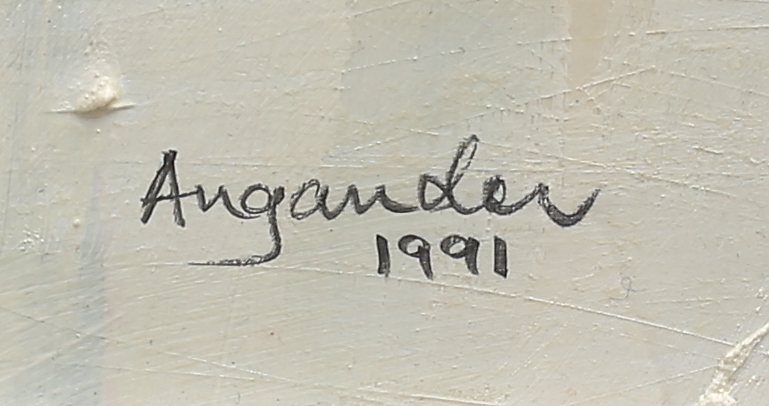 Angander
1991